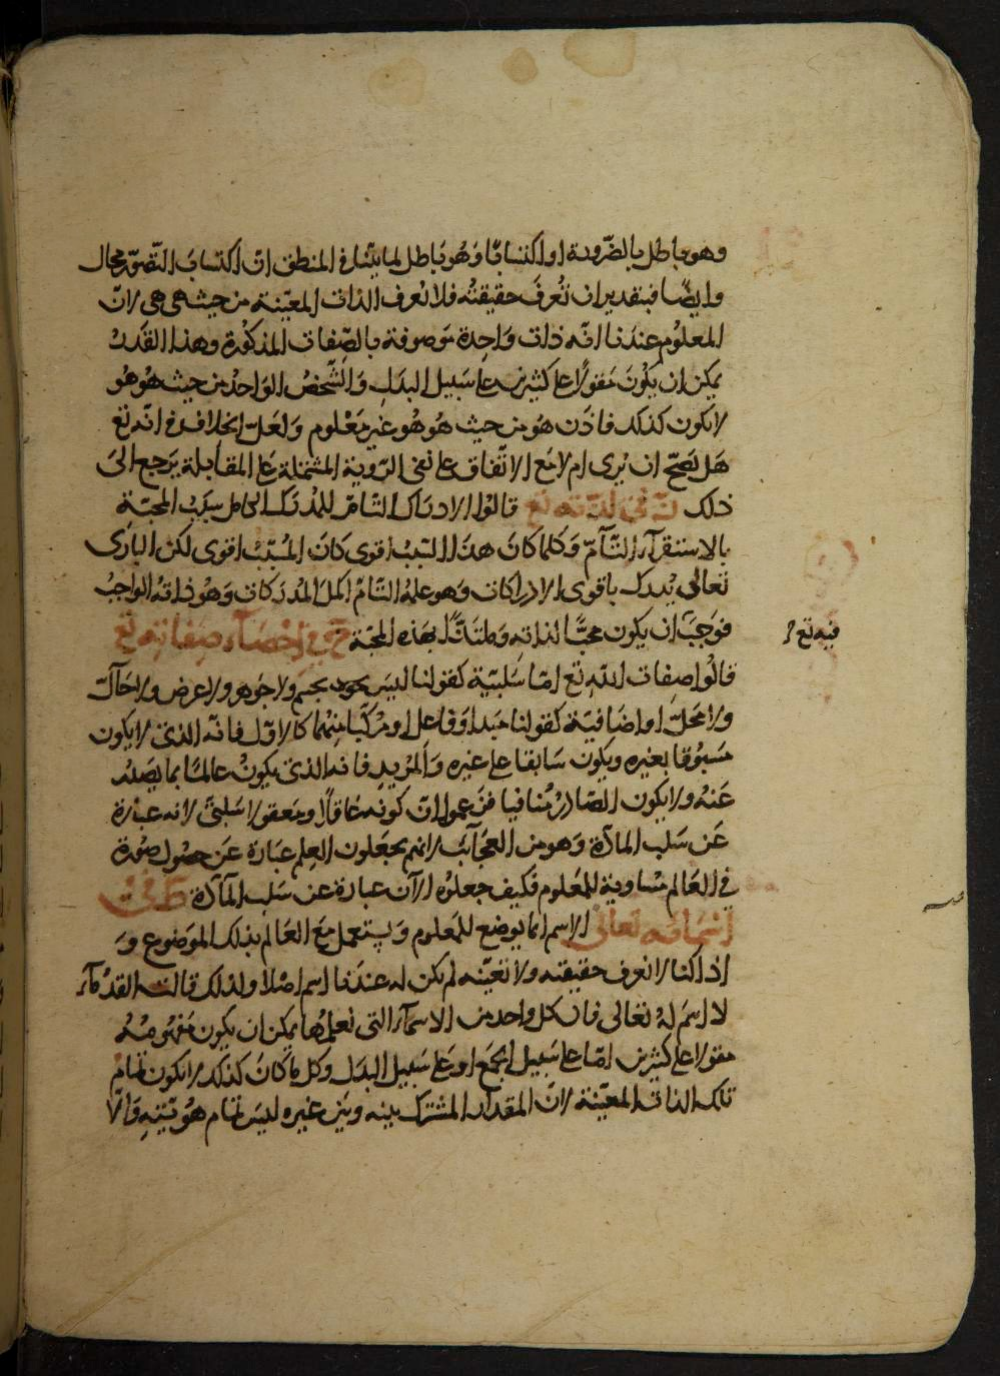 وهو باطل بالضرورة او اكتسابا وهو باطل لما بينا في المنطق ان اكتساب التصور محال
وايضا فبتقدير ان تعرف حقيقته فلا تعرف الذات المعينة من حيث هي هي لان
المعلوم عندنا انه ذات واحدة موصوفة بالصفات المذكورة وهذا القدر
يمكن ان يكون مقولا على كثيرين على سبيل البدل والشخص الواحد من حيث هو هو
لا يكون كذلك فاذن هو من حيث هو هو غير معلوم ولعل الخلاف في انه تع
هل يصح ان يرى ام لا مع الاتفاق على نفي الرؤية المشتملة على المقابلة يرجع الى
ذلك في لذته تع قالوا الادراك التام للمدرك الكامل سبب المحبة
بالاستقرآء التآم وكلما كان هذا السبب اقوى كان المسبب اقوى لكن الباري
تعالى يدرك باقوى الادراكات وهو علمه التام اكمل المدركات وهو ذاته الواجب
فوجب ان يكون محبا لذاته وملتذا بهذه المحبة في احصآء صفاته تع
فيه تع
قالوا صفات الله تع اما سلبية كقولنا ليس بجسم ولا جوهر ولا عرض ولا حآل
ولا محل او اضافية كقولنا مبدا وفاعل او مركبا منهما كالاول فانه الذي لا يكون
مسبوقا بغيره ويكون سابقا على غيره والمريد فانه الذي يكون عالما بما يصدر
عنه ولا يكون الصادر منافيا فزعموا ان كونه عاقلا ومعقولا سلبي لانه عبارة
عن سلب المادة وهو من العجآئب لانهم يجعلون العلم عبارة عن حصول صورة
في العالم مساوية للمعلوم فكيف جعلوه الآن عبارة عن سلب المآدة في
اسمائه تعالى الاسم انما يوضع للمعلوم ويستعمل مع العالم بذلك الموضوع و
اذا كنا لا نعرف حقيقته ولا تعينه لم يكن له عندنا اسم اصلا ولذلك قالت القدمآء
لا اسم له تعالى فان كل واحد من الاسمآء التي نعلمها يمكن ان يكون مفهومه
مقولا على كثيرين اما على سبيل الجمع او على سبيل البدل وكل ما كان كذلك لا يكون تمام
تلك الذات المعينة لان المقدار المشترك بينه وبين غيره ليس تمام هويته والا